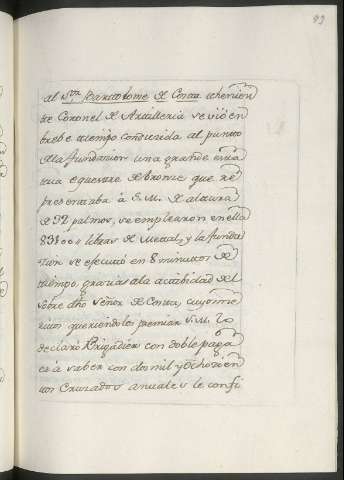 93
al Sor. Bartolome de Costa theniēn
te Coronel de Artilleria se vió en
brebe tiempo conducida al punto
de la fundacion una grande esta
tua equestre de bronze que re
presentaba à S. M. de altura
de 32 palmos, se emplearon en ella
libras de Metal, y la fundi
cion se efecutó en 8 minutos de
tiempo, gracias a la actibidad del
sobre dho Señor de Costa, cuyo me
rito queriendolos premiar S. M. lo
declaró Brigadier con doble paga
es à saber con dos mil y Ochocien
tos Cruzados anuales le confi